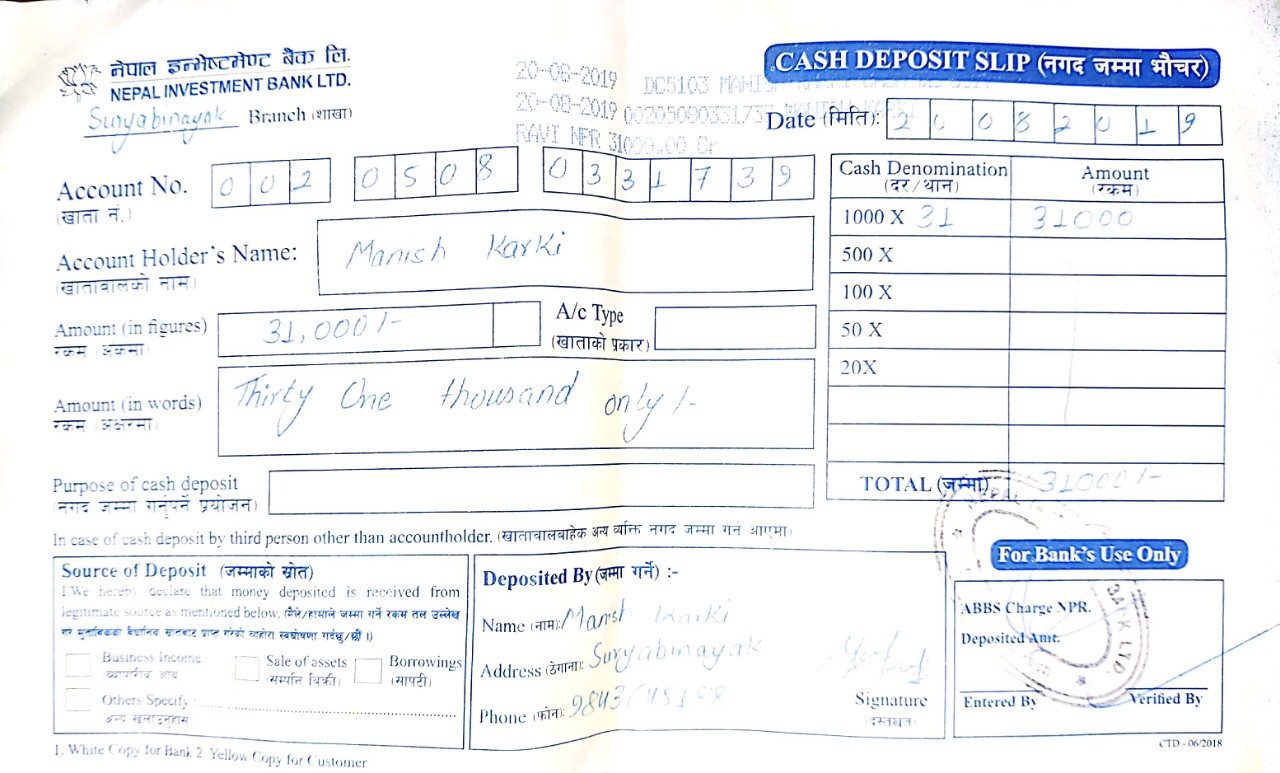 नेपाल इन्भेष्टमेण्ट बैंक लि.
NEPAL INVESTMENT BANK LTD.
Suryabinayak Branch (शाखा)
20-08-2019 DC5103
20-08-2019 00205080331739 MANISH KARKI
RAVI NPR 31000.00 Cr
CASH DEPOSIT SLIP (नगद जम्मा भौचर)
Date (मिति): 2 0 0 8 2 0 1 9
Account No. 0 0 2 0 5 0 8 0 3 3 1 7 3 9
(खाता नं.)
Account Holder's Name: Manish Karki
(खातावालको नाम)
Amount (in figures) 31,000/-
रकम (अंकमा)
A/c Type
(खाताको प्रकार)
Amount (in words) Thirty One thousand only/-
रकम (अक्षरमा)
Purpose of cash deposit
(नगद जम्मा गर्नुपर्ने प्रयोजन)
Cash Denomination Amount
(दर/थान) (रकम)
1000 X 31 31000
500 X
100 X
50 X
20X
TOTAL (जम्मा) 31000/-
In case of cash deposit by third person other than accountholder. (खातावालबाहेक अन्य व्यक्ति नगद जम्मा गर्न आएमा)
Source of Deposit (जम्माको स्रोत)
I/We hereby declare that money deposited is received from
legitimate source as mentioned below. (मैले/हामीले जम्मा गर्ने रकम तल उल्लेख
Business Income
Sale of assets
(सम्पत्ति बिक्री)
Borrowings
(सापटी)
Others Specify :
Deposited By (जम्मा गर्ने) :-
Name (नाम): Manish Karki
Address (ठेगाना): Suryabinayak
Phone (फोन):
Signature
(दस्तखत)
For Bank's Use Only
ABBS Charge NPR.
Deposited Amt.
Entered By Verified By
BANK LTD.
1. White Copy for Bank 2. Yellow Copy for Customer
CTD - 06/2018